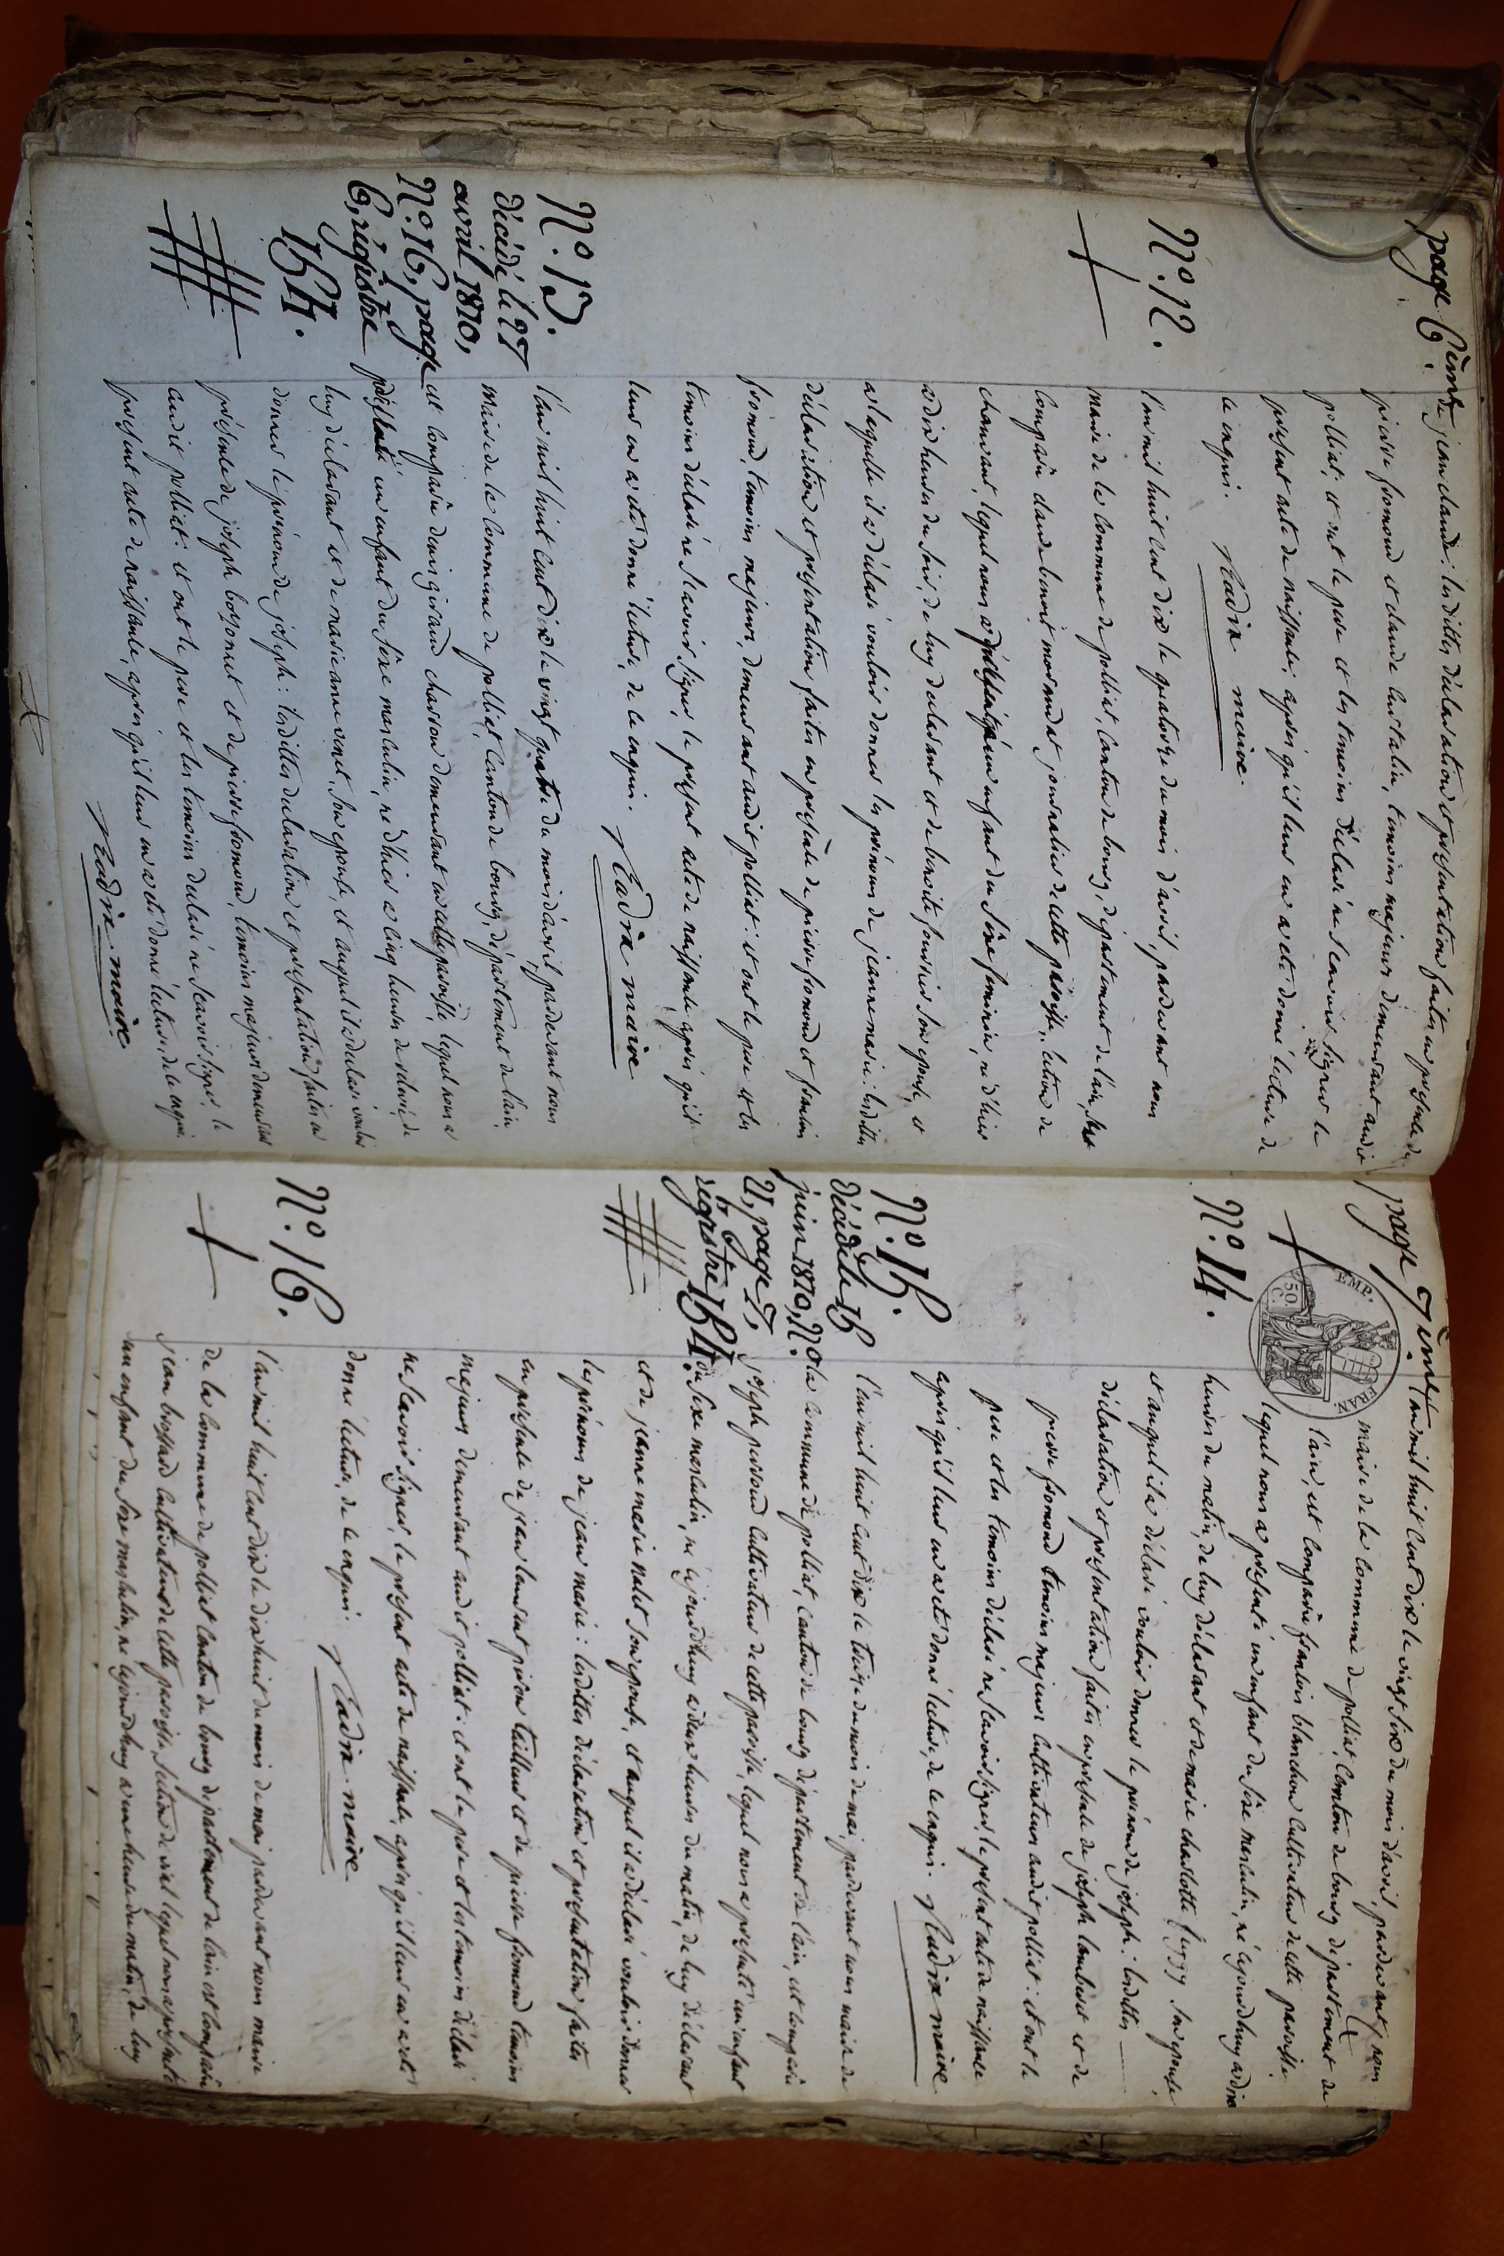 page 6ème
de jean claude: lesdittes déclaration et presentation faites en presence de
pierre fromond et claude temoins majeurs demeurant audit
polliat, et ont le pere et les temoins déclaré ne scavoir signer le
present acte de naissance, après qu'il leur en a eté donné lecture de
ce enquis.
maire
N.o 12.
L'an mil huit cent dix le quatorze du mois d'avril, pardevant nous
maire de la commune de polliat, canton de bourg, departement de l'ain, est
comparu claude benoit journalier de cette paroisse, section de
lequel nous a présenté un enfant du sexe feminin, né d'hier
a dix heures du soir, de luy declarant et de benoite son epouse, et
a laquelle il a déclaré vouloir donner les prénoms de jeanne marie: lesdittes
déclaration et presentation faites en presence de pierre fromond et
fromond, temoins majeurs, demeurant audit polliat: et ont le pere et les
temoins déclaré ne scavoir signer, le present acte de naissance, après qu'il
leur en a eté donné lecture, de ce enquis.
maire
N.o 13.
décédé le 27
avril 1810,
N.o 16, page
6, régistre
154.
L'an mil huit cent dix le vingt quatre du mois d'avril, pardevant nous
maire de la commune de polliat, canton de bourg, département de l'ain,
est comparu denis giraud charron demeurant en cette paroisse, lequel nous a
présenté un enfant du sexe masculin, né d'hier a cinq heures de relevé, de
luy déclarant et de marie anne son epouse, et auquel il a déclaré vouloir
donner le prénom de joseph: lesdittes declaration et presentation faites en
présence de joseph et de pierre fromond, temoins majeurs demeurant
audit polliat: et ont le pere et les temoins declaré ne scavoir signer le
present acte de naissance, après qu'il leur en a eté donné lecture, de ce enquis.
maire
page 7ème
N.o 14.
EMP. FRAN
50 C.
L'an mil huit cent dix le vingt six du mois d'avril, pardevant nous
maire de la commune de polliat, canton de bourg departement de
l'ain, est comparu blanchon cultivateur de cette paroisse
lequel nous a presenté un enfant du sexe masculin, né cejourdhuy a dix
heures du matin, de luy déclarant et de marie charlotte son epouse,
et auquel il a déclaré vouloir donner le prénom de joseph: lesdittes
déclaration et presentation faites en presence de joseph et de
pierre fromond temoins majeurs cultivateurs audit polliat: et ont le
pere et les temoins déclaré ne scavoir signer, le present acte de naissance
après qu'il leur en a eté donné lecture, de ce enquis. maire
N.o 15.
décédé le 15
juin 1810, N.o
21, page 7,
régistre 154.
L'an mil huit cent dix le treize du mois de mai, pardevant nous maire de
la commune de polliat, canton de bourg département de l'ain, est comparu
joseph cultivateur de cette paroisse, lequel nous a presenté un enfant
du sexe masculin, né cejourdhuy a deux heures du matin, de luy déclarant
et de jeanne marie son epouse, et auquel il a déclaré vouloir donner
les prénoms de jean marie: lesdittes déclaration et presentation faites
en presence de jean tailleur et de pierre fromond temoins
majeurs demeurant audit polliat: et ont le pere et les temoins déclaré
ne scavoir signer, le present acte de naissance, après qu'il leur en a eté
donné lecture, de ce enquis. maire
N.o 16.
L'an mil huit cent dix le dix huit du mois de mai pardevant nous maire
de la commune de polliat canton de bourg departement de l'ain est comparu
jean cultivateur de cette paroisse, section de lequel nous a presenté
un enfant du sexe masculin, né cejourdhuy a une heure du matin, de luy